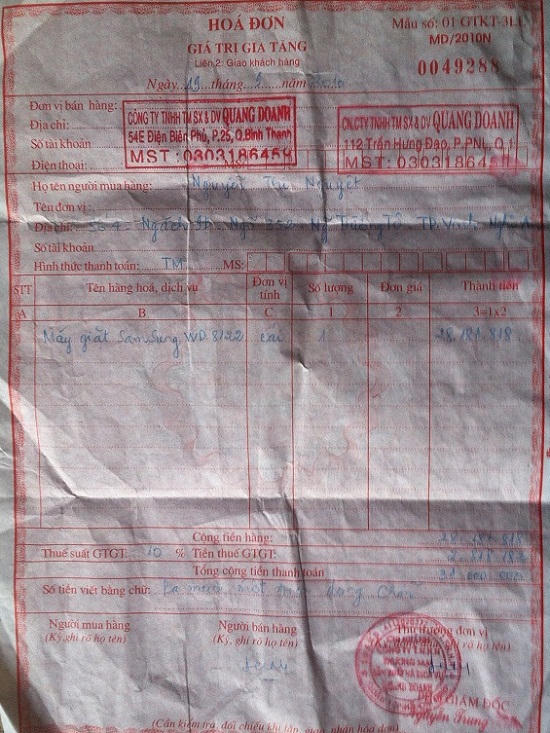 HOÁ ĐƠN
GIÁ TRỊ GIA TĂNG
Liên 2: Giao khách hàng
Mẫu số: 01 GTKT-3LL
MD/2010N
0049288
Ngày 19 tháng 2 năm 2010
Đơn vị bán hàng:
Địa chỉ:
Số tài khoản
Điện thoại:
CÔNG TY TNHH TM SX & DV QUANG DOANH
54E Điện Biên Phủ, P.25, Q.Bình Thạnh
MST: 0303186459
CN.CTY TNHH TM SX & DV QUANG DOANH
112 Trần Hưng Đạo, P.PNL, Q.1
MST: 0303186459
Họ tên người mua hàng: Nguyễn Thu Nguyệt
Tên đơn vị:
Địa chỉ: Ngách Ngõ TP. Vinh
Số tài khoản
Hình thức thanh toán: TM MS:
STT Tên hàng hoá, dịch vụ Đơn vị tính Số lượng Đơn giá Thành tiền
A B C 1 2 3=1x2
Máy giặt SamSung WD 8122 cái 1 28.181.818
Cộng tiền hàng: 28.181.818
Thuế suất GTGT: 10 % Tiền thuế GTGT: 2.818.182
Tổng cộng tiền thanh toán 31.000.000
Số tiền viết bằng chữ: Ba mươi một triệu đồng chẵn
Người mua hàng Người bán hàng Thủ trưởng đơn vị
(Ký, ghi rõ họ tên) (Ký, ghi rõ họ tên)
QUANG DOANH
GIÁM ĐỐC
Nguyễn Trung
(Cần kiểm tra, đối chiếu khi lập, giao, nhận hóa đơn)